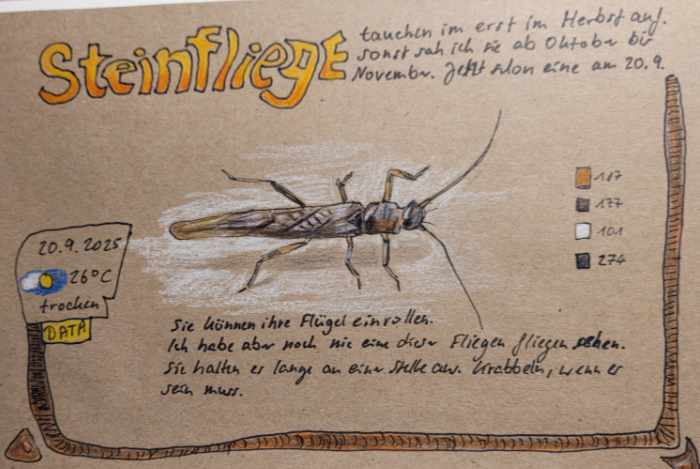 SteinfliegE
tauchen im erst im Herbst auf.
sonst sah ich sie ab Oktober bis
November. Jetzt schon eine am 20.9.
187
177
101
274
20.9.2025
26°C
trocken
DATA
Sie können ihre Flügel einrollen.
Ich habe aber noch nie eine dieser Fliegen fliegen sehen.
Sie halten es lange an einer Stelle aus. Krabbeln, wenn es
sein muss.